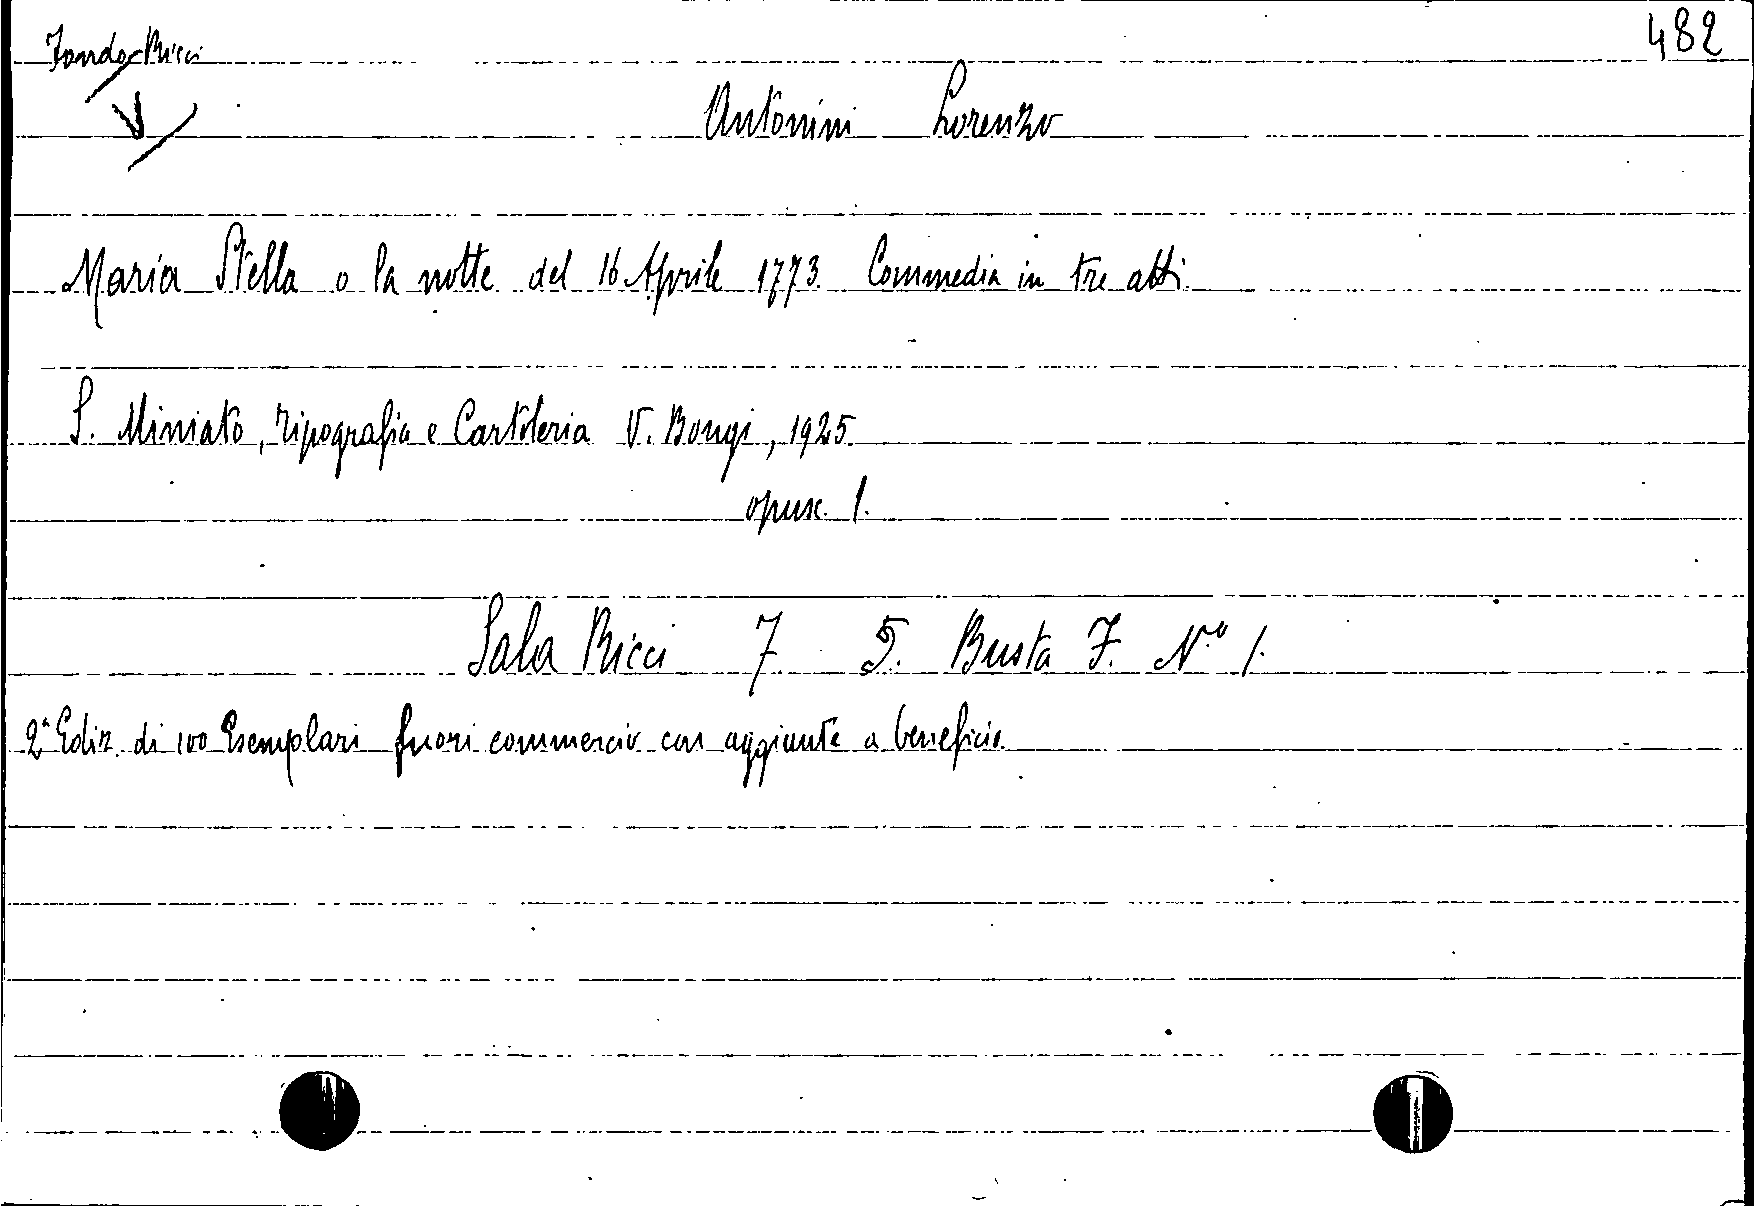 Fondo Ricci
482
V
Antonini Lorenzo
Maria Stella o la notte del 16 Aprile 1773. Commedia in tre atti.
S. Miniato, Tipografia e Cartoleria V. Bongi, 1925.
opusc. 1.
Sala Ricci 7. 5. Busta 7. N.º 1.
2ª Ediz. di 100 Esemplari fuori commercio con aggiunte a beneficio.